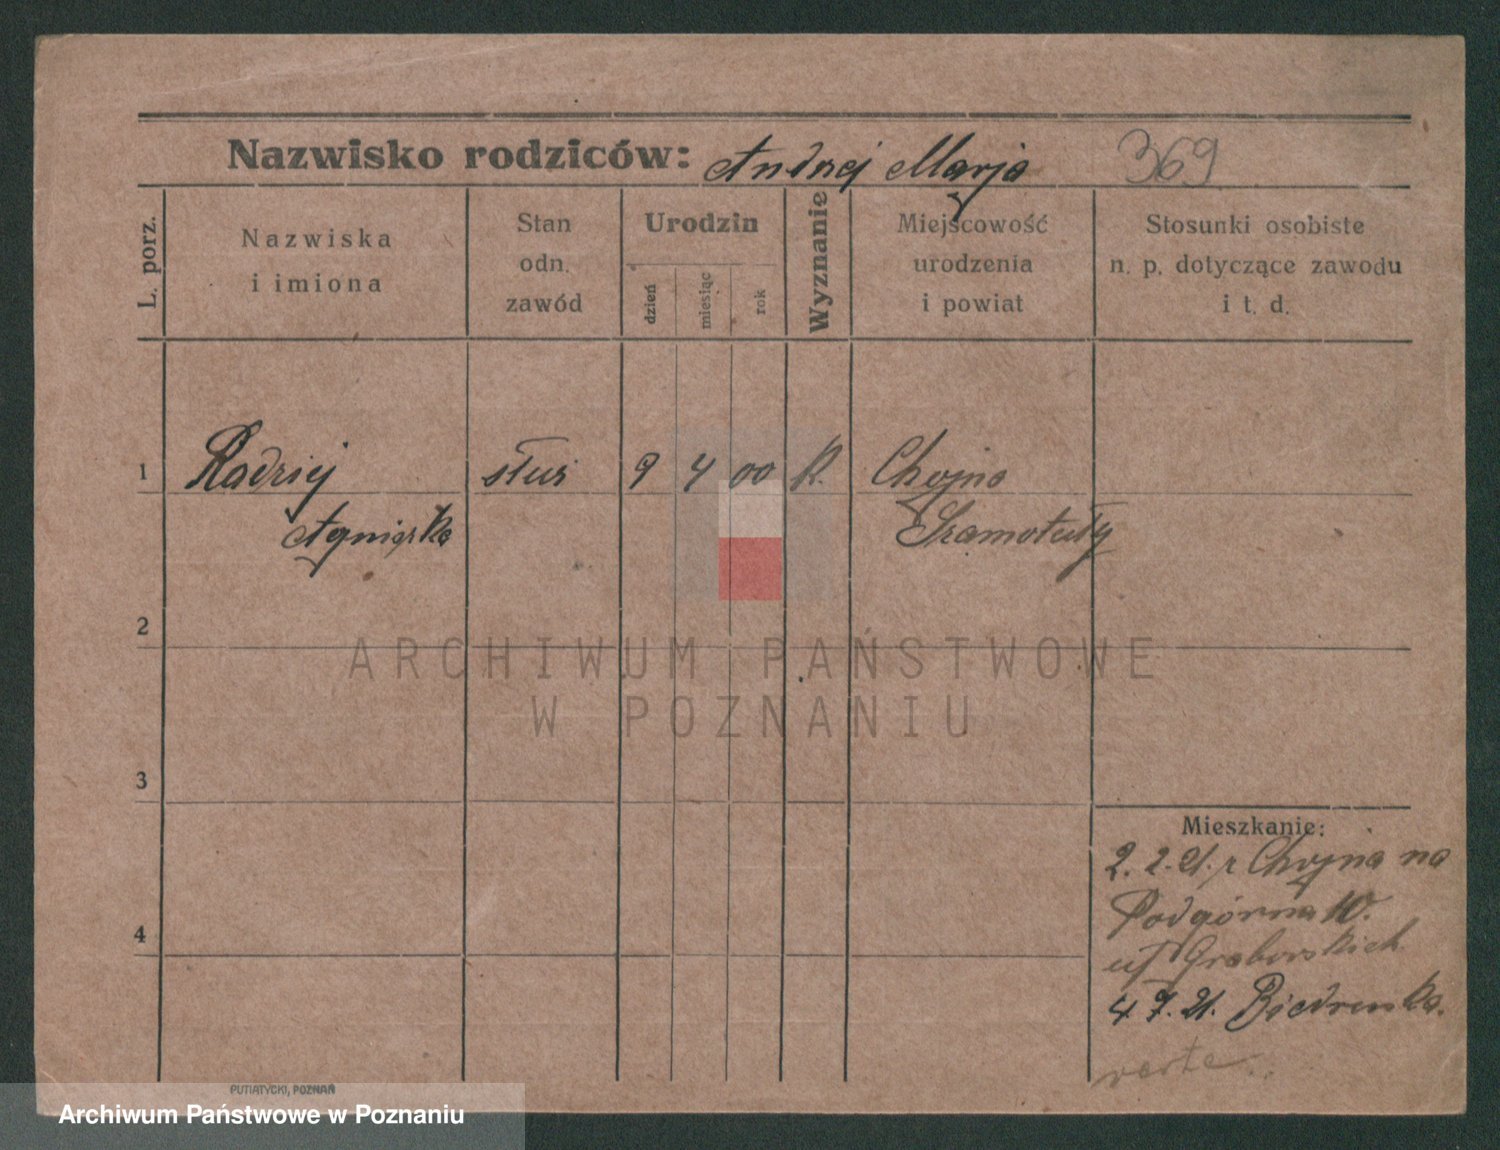 Nazwisko rodziców: Andrzej Marja 369
L. porz.
Nazwiska
i imiona
Stan
odn.
zawód
Urodzin
dzień
miesiąc
rok
Wyznanie
Miejscowość
urodzenia
i powiat
Stosunki osobiste
n. p. dotyczące zawodu
i t. d.
1 Radziej służ 9 4 00 K. Chojno
Agnieszka Szamotuły
2
3
4
ARCHIWUM PAŃSTWOWE
W POZNANIU
Mieszkanie:
2. 2. 21. z Chojna na
Podgórna 10.
Grabowskich
4 7. 21. Biedrusko.
verte
PUTIATYCKI, POZNAŃ
Archiwum Państwowe w Poznaniu